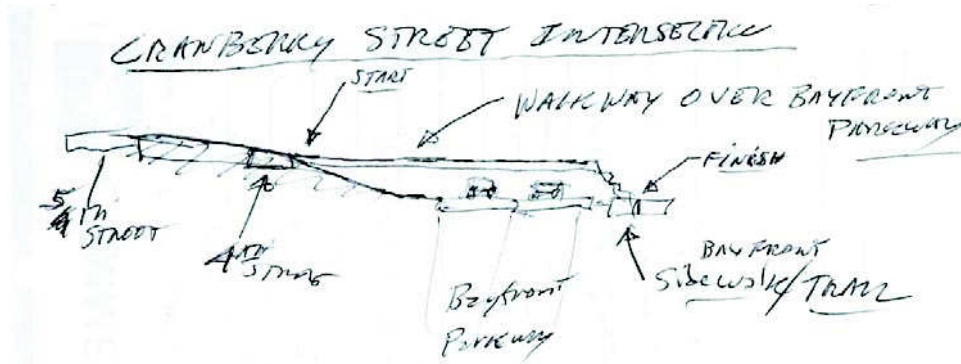 CRANBERRY STREET INTERSECTION
START
WALKWAY OVER BAYFRONT
PARKWAY
FINISH
5TH
STREET
4TH
STREET
Bayfront
Parkway
BAYFRONT
Sidewalk/TRAIL